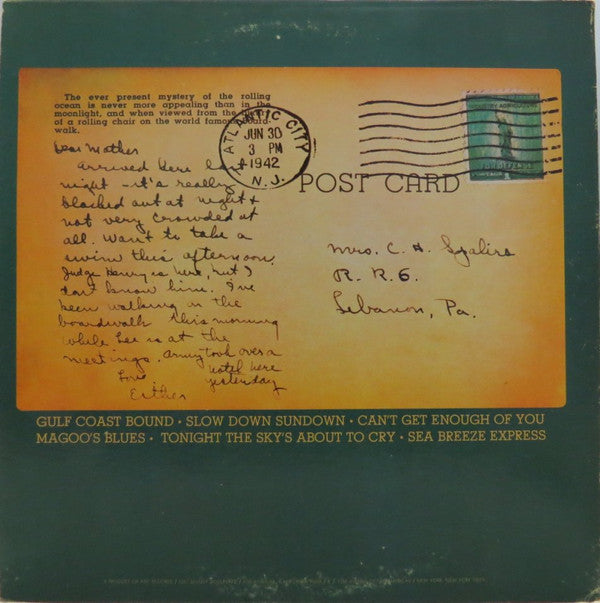 The ever present mystery of the rolling
ocean is never more appealing than in the
moonlight, and when viewed from the
of a rolling chair on the world famous board-
walk.
ATLANTIC CITY
JUN 30
3 PM
1942
N. J.
INDUSTRY AGRICULTURE
FOR DEFENSE
POST CARD
Dear Mother
Arrived here last
night - it's really
blacked out at night &
not very crowded at
all. Want to take a
swim this afternoon.
Judge Henry is here, but I
don't know him. I've
been walking on the
boardwalk this morning
while Lee is at the
meetings. Army took over a
hotel here
yesterday
Love
Esther
Mrs. C. H.
R. R. 6.
Lebanon, Pa.
GULF COAST BOUND • SLOW DOWN SUNDOWN • CAN'T GET ENOUGH OF YOU
MAGOO'S BLUES • TONIGHT THE SKY'S ABOUT TO CRY • SEA BREEZE EXPRESS